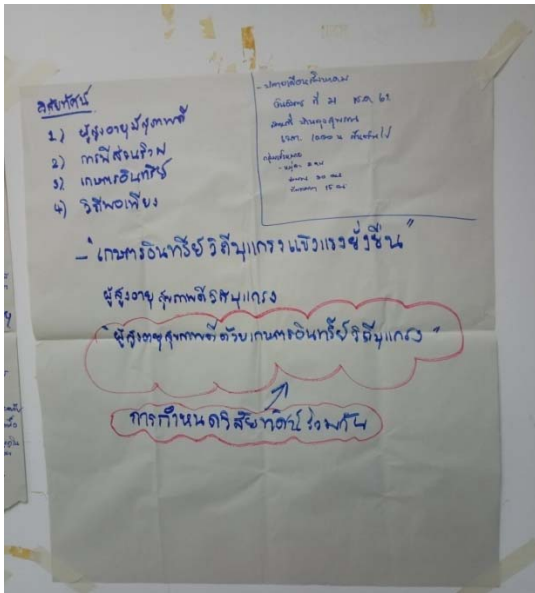 วิสัยทัศน์
1) ผู้สูงอายุมีสุขภาพดี
2) การมีส่วนร่วม
3) เกษตรอินทรีย์
4) วิถีพอเพียง
- ปลายเดือนสิงหาคม
ที่ 21 ส.ค. 62
สถานที่
เวลา 10.00 น. เป็นต้นไป
กลุ่มเป้าหมาย
- "เกษตรอินทรีย์วิถีบุแกรงแข็งแรงยั่งยืน"
ผู้สูงอายุสุขภาพดีวิถีบุแกรง
"ผู้สูงอายุสุขภาพดีด้วยเกษตรอินทรีย์วิถีบุแกรง"
การกำหนดวิสัยทัศน์ร่วมกัน